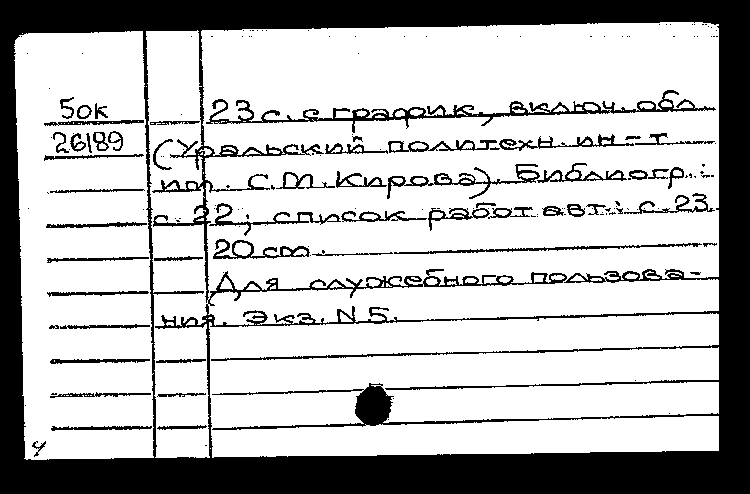 5ок
26189
23 с. с график., включ. обл.
(Уральский политехн. ин-т
им. С.М. Кирова). Библиогр.:
с. 22; список работ авт.: с. 23
20 см.
Для служебного пользова-
ния. Экз. N 5.
4